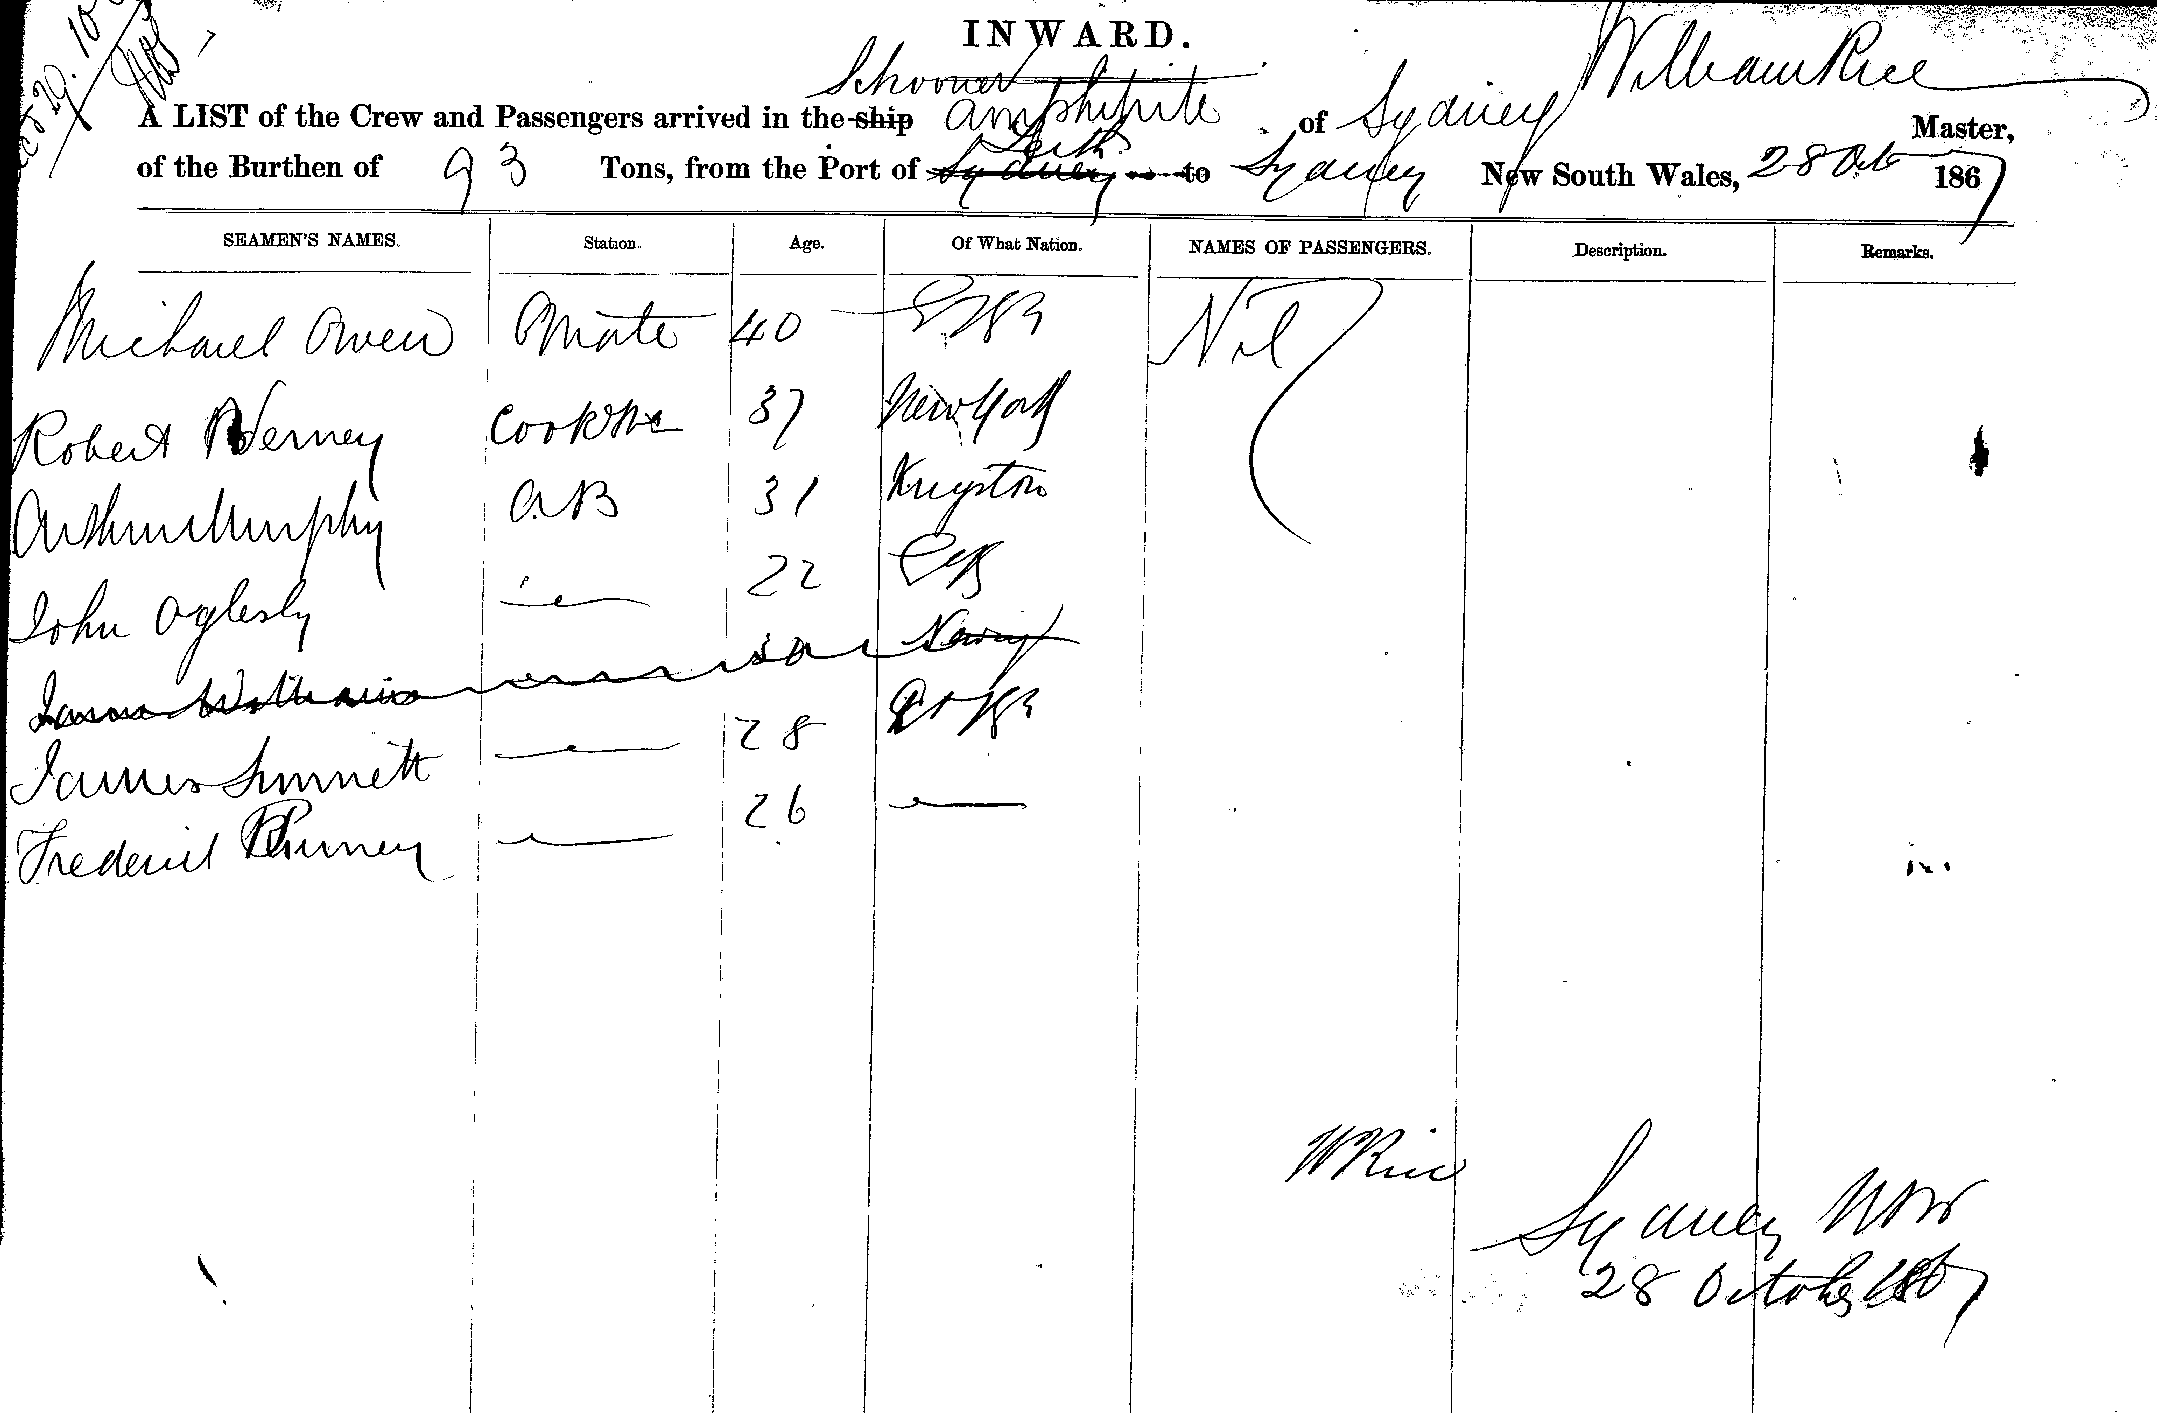 INWARD.
Schooner William Rice
A LIST of the Crew and Passengers arrived in the ship Amphitrite of Sydney Master,
of the Burthen of 93 Tons, from the Port of Sydney to Sydney New South Wales, 28 Oct 1867
SEAMEN'S NAMES. Station. Age. Of What Nation. NAMES OF PASSENGERS. Description. Remarks.
Michael Owen Mate 40 Nil
Robert Cook 37 New York
Arthur Murphy A.B 31 Kingston
John Oglesby 22
30
James Sinnett 28
Frederick 26
W Rice
Sydney NSW
28 October 1867